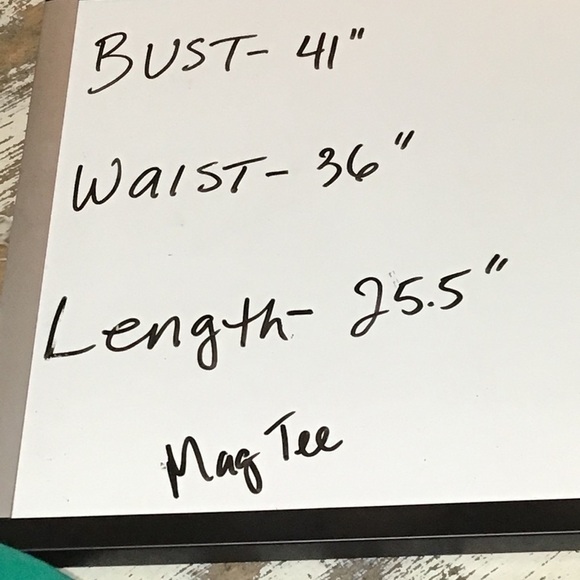 BUST- 41"
WAIST- 36"
Length- 25.5"
Mag Tee